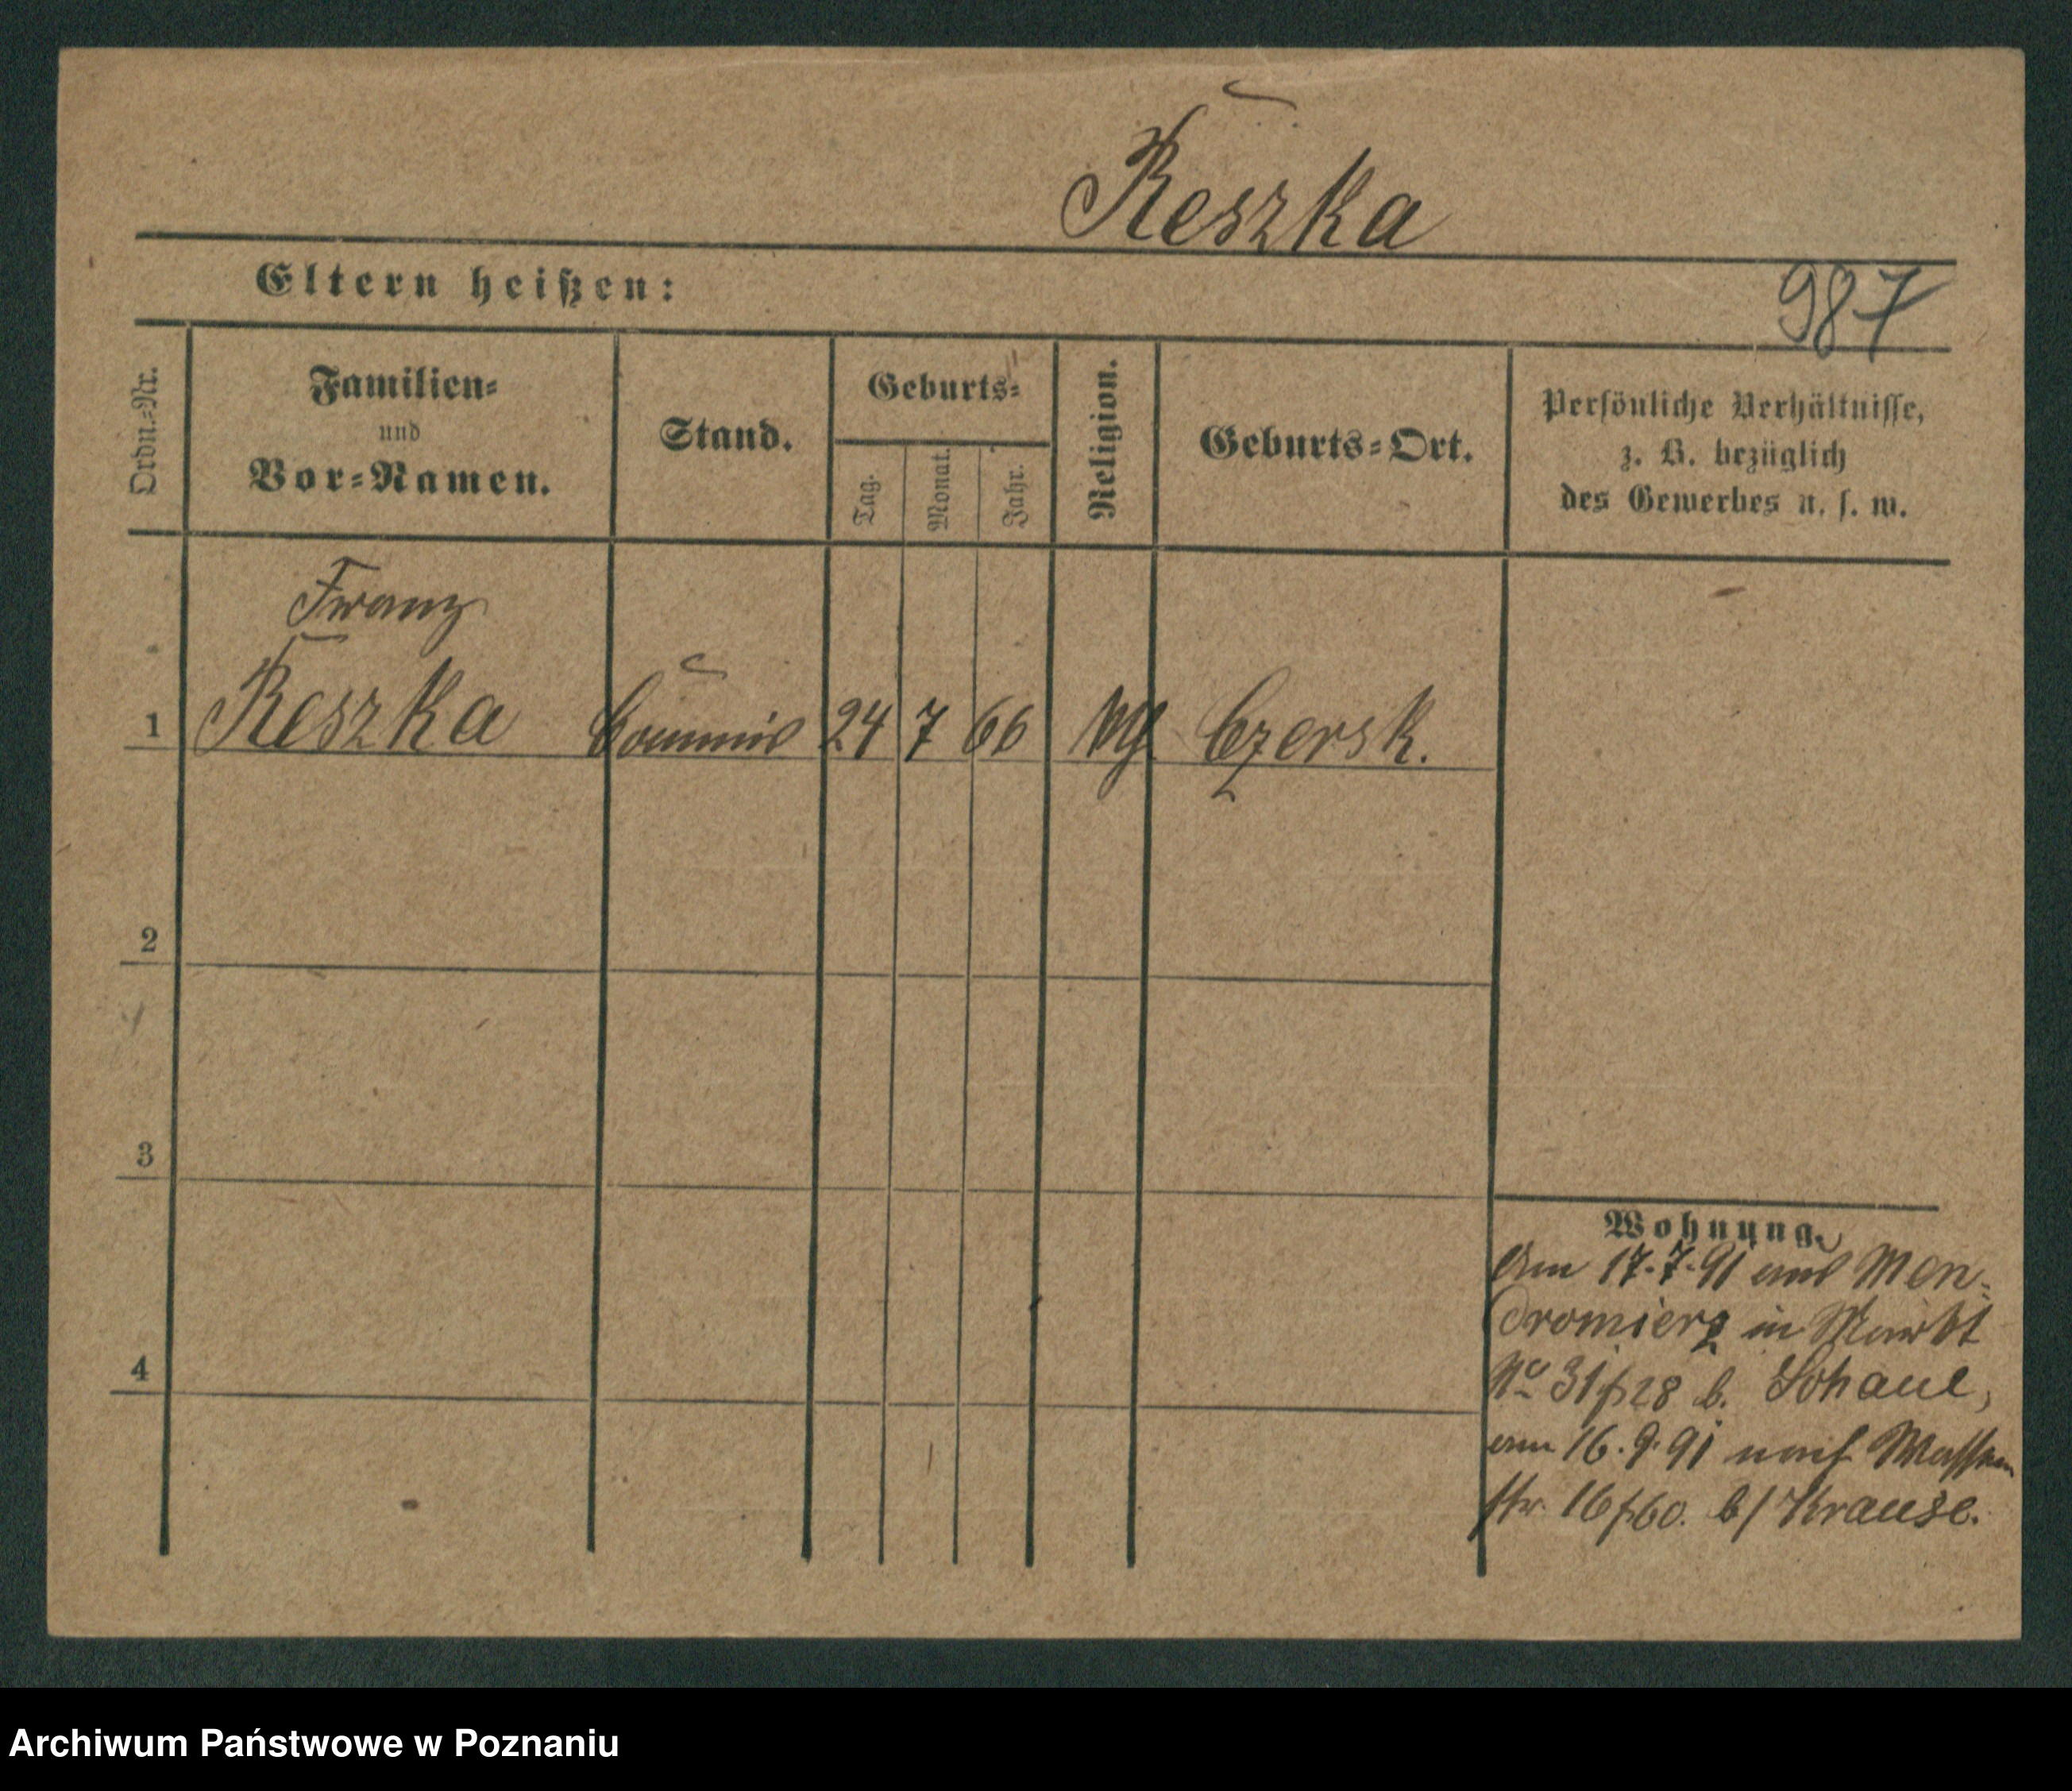 Reszka
Eltern heißen:
987
Ordn.=Nr.
Familien=
und
Vor=Namen.
Stand.
Geburts=
Tag.
Monat.
Jahr.
Religion.
Geburts=Ort.
Persönliche Verhältnisse,
z. B. bezüglich
des Gewerbes u. s. w.
Franz
1 Reszka Commis 24 7 66 Czersk.
2
3
4
Wohnung.
Am 17.7.91 aus Men=
dromierz in Markt
No 31/28 b.
am 16.9.91 nach
str. 16/60. b/ Krause.
Archiwum Państwowe w Poznaniu